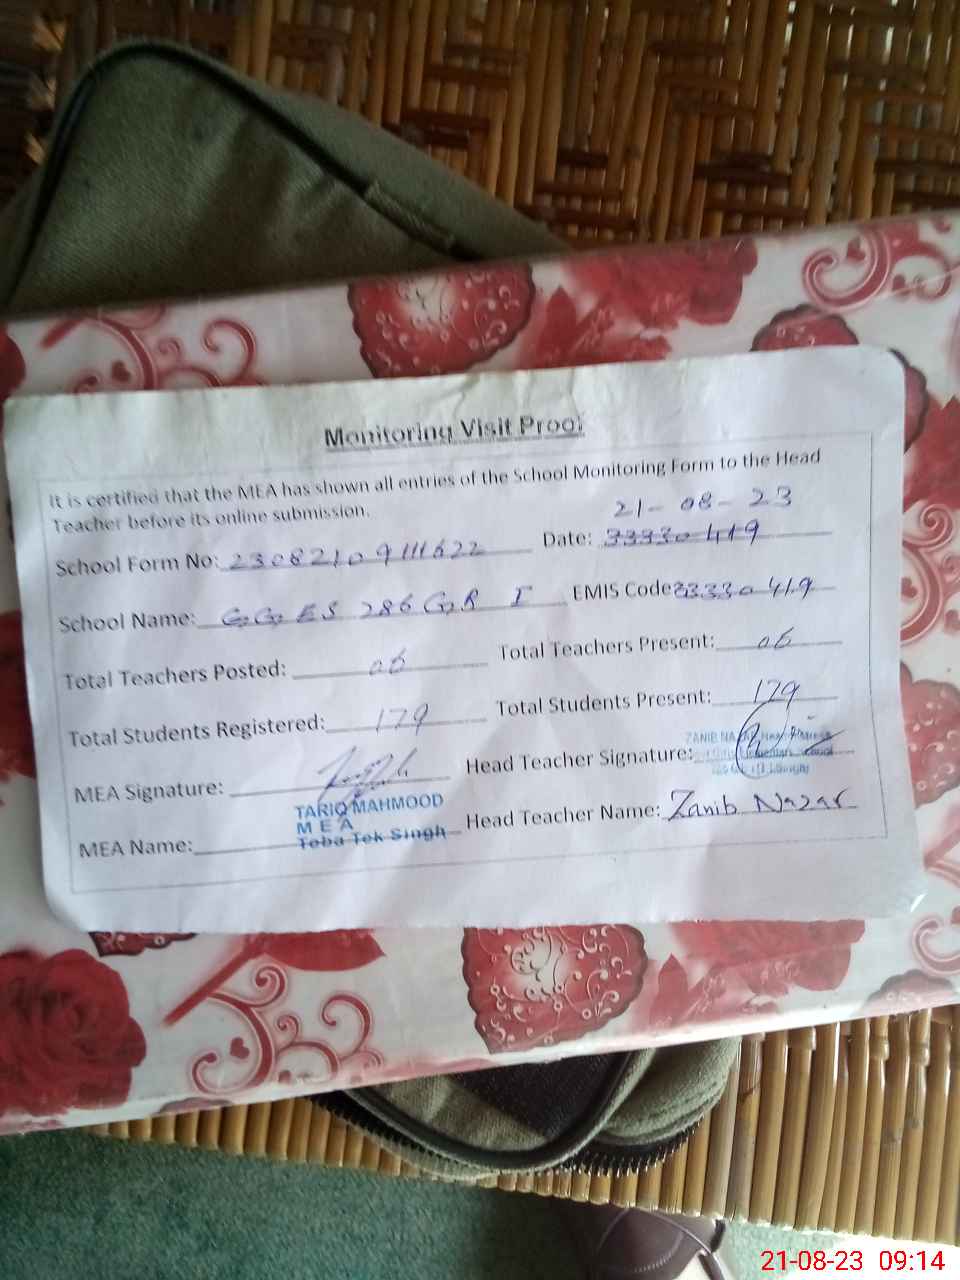 Monitoring Visit Proof
It is certified that the MEA has shown all entries of the School Monitoring Form to the Head
Teacher before its online submission.
21-08-23
School Form No: 230821091111622 Date: 33330419
School Name: GGES 286 GB I EMIS Code 33330419
Total Teachers Posted: 06 Total Teachers Present: 06
Total Students Registered: 179 Total Students Present: 179
MEA Signature: Head Teacher Signature:
ZANIB NAZAR
Elementary School
TARIQ MAHMOOD
MEA
Toba Tek Singh
MEA Name: Head Teacher Name: Zanib Nazar
21-08-23 09:14